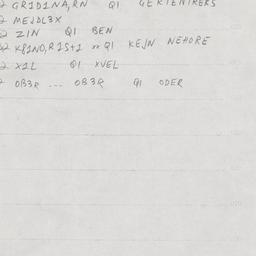 2 GR1D1NA,RN Q1 GERTENTREKS
2 MEJDL3X
2 Z1N Q1 BEN
2 K81NO,R1S+1 Q1 KEJN NEHORE
2 X1L Q1 XVEL
2 OB3R ... OB3R Q1 ODER